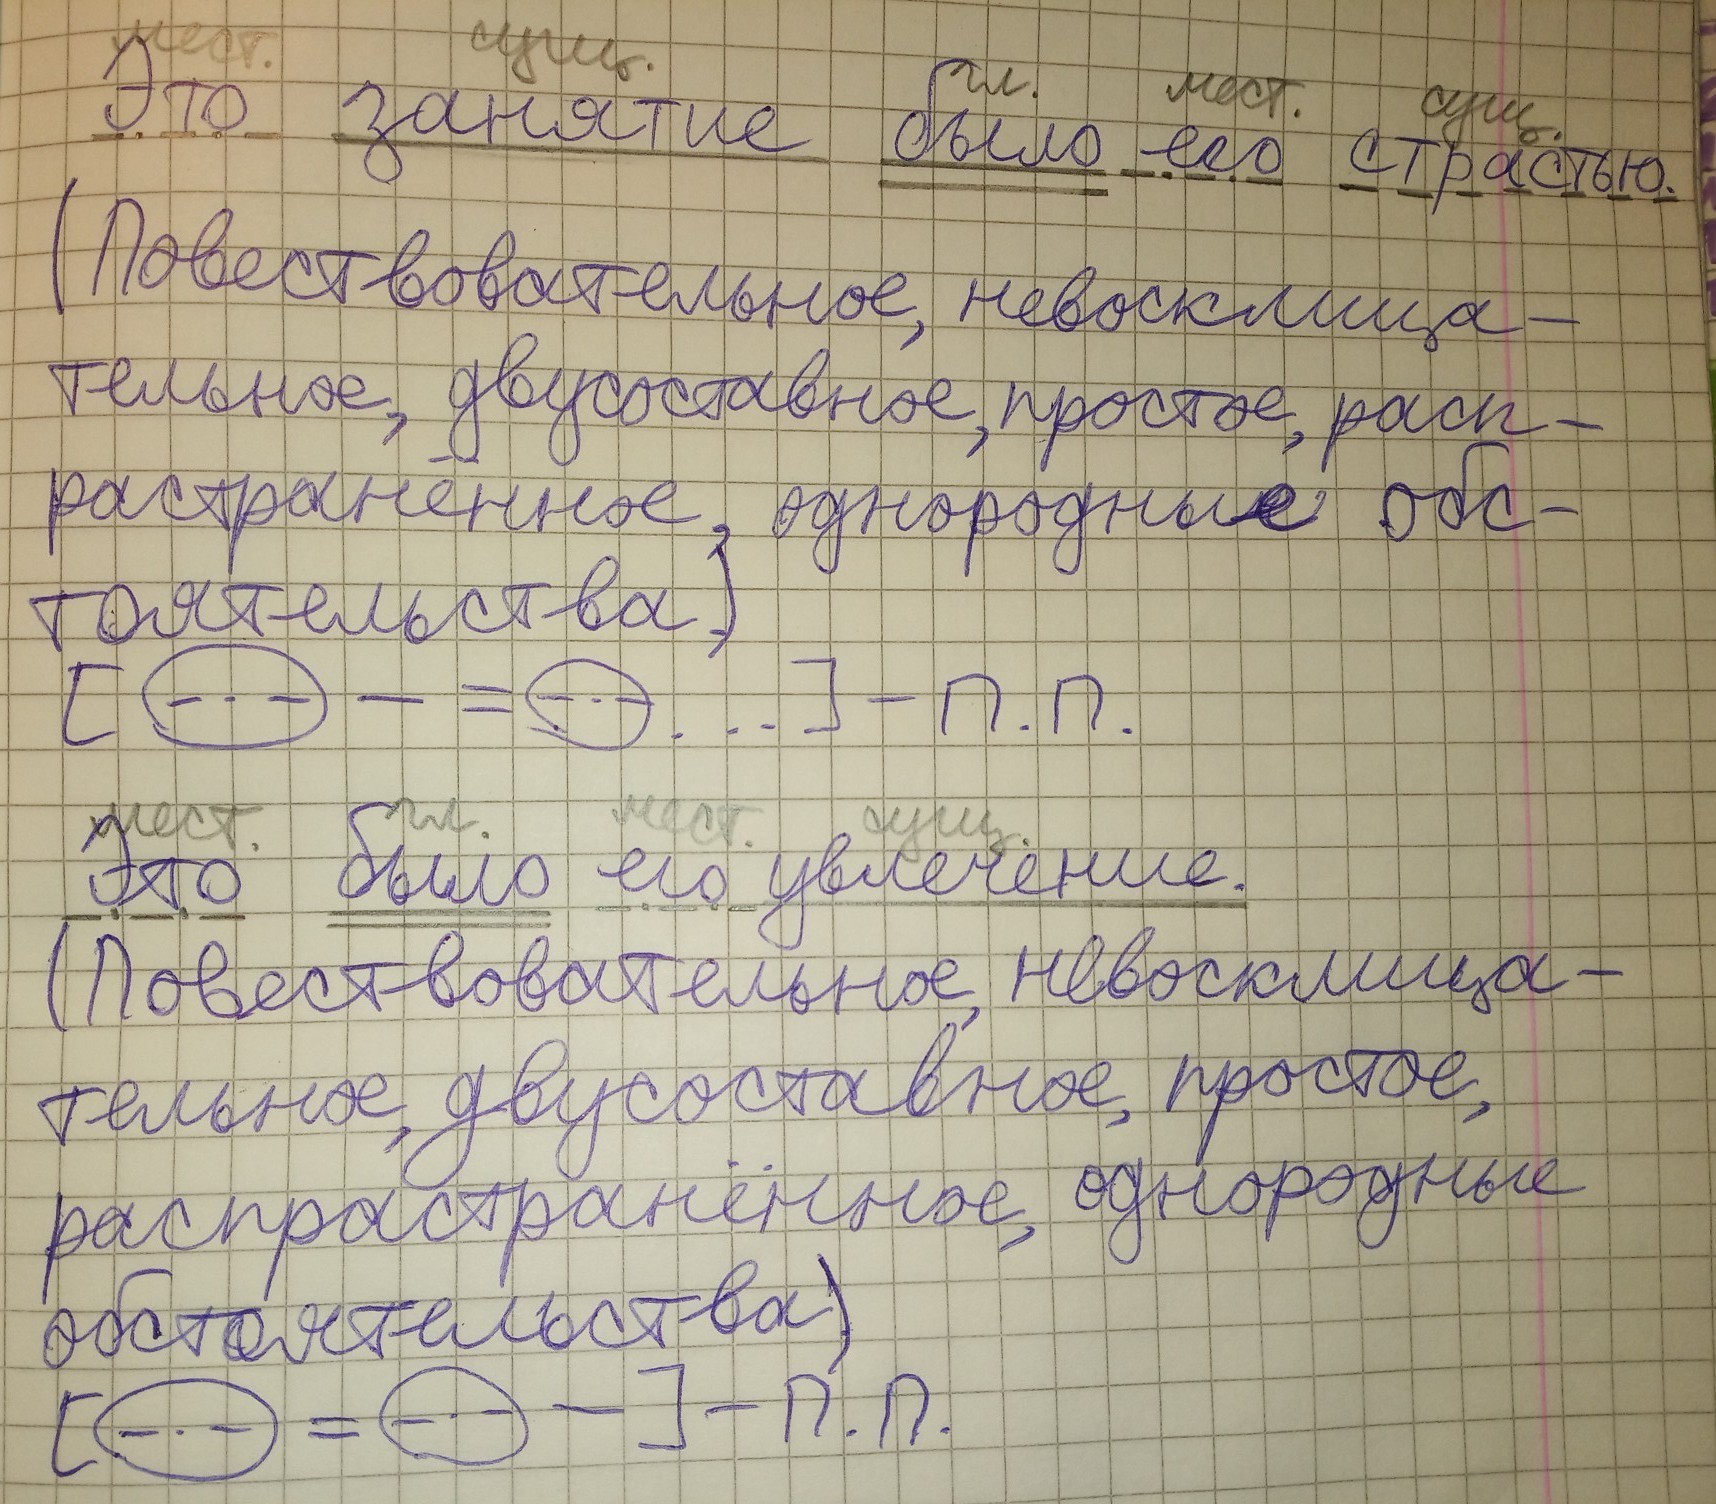 мест. сущ. гл. мест. сущ.
Это занятие было его страстью.
(Повествовательное, невосклица-
тельное, двусоставное, простое, расп-
растранённое, однородные обс-
тоятельства)
[ -.- — = -.- . .. ] - п.п.
мест. гл. мест. сущ.
Это было его увлечение.
(Повествовательное, невосклица-
тельное, двусоставное, простое,
распрастранённое, однородные
обстоятельства)
[ -.- = -.- — ] - п.п.